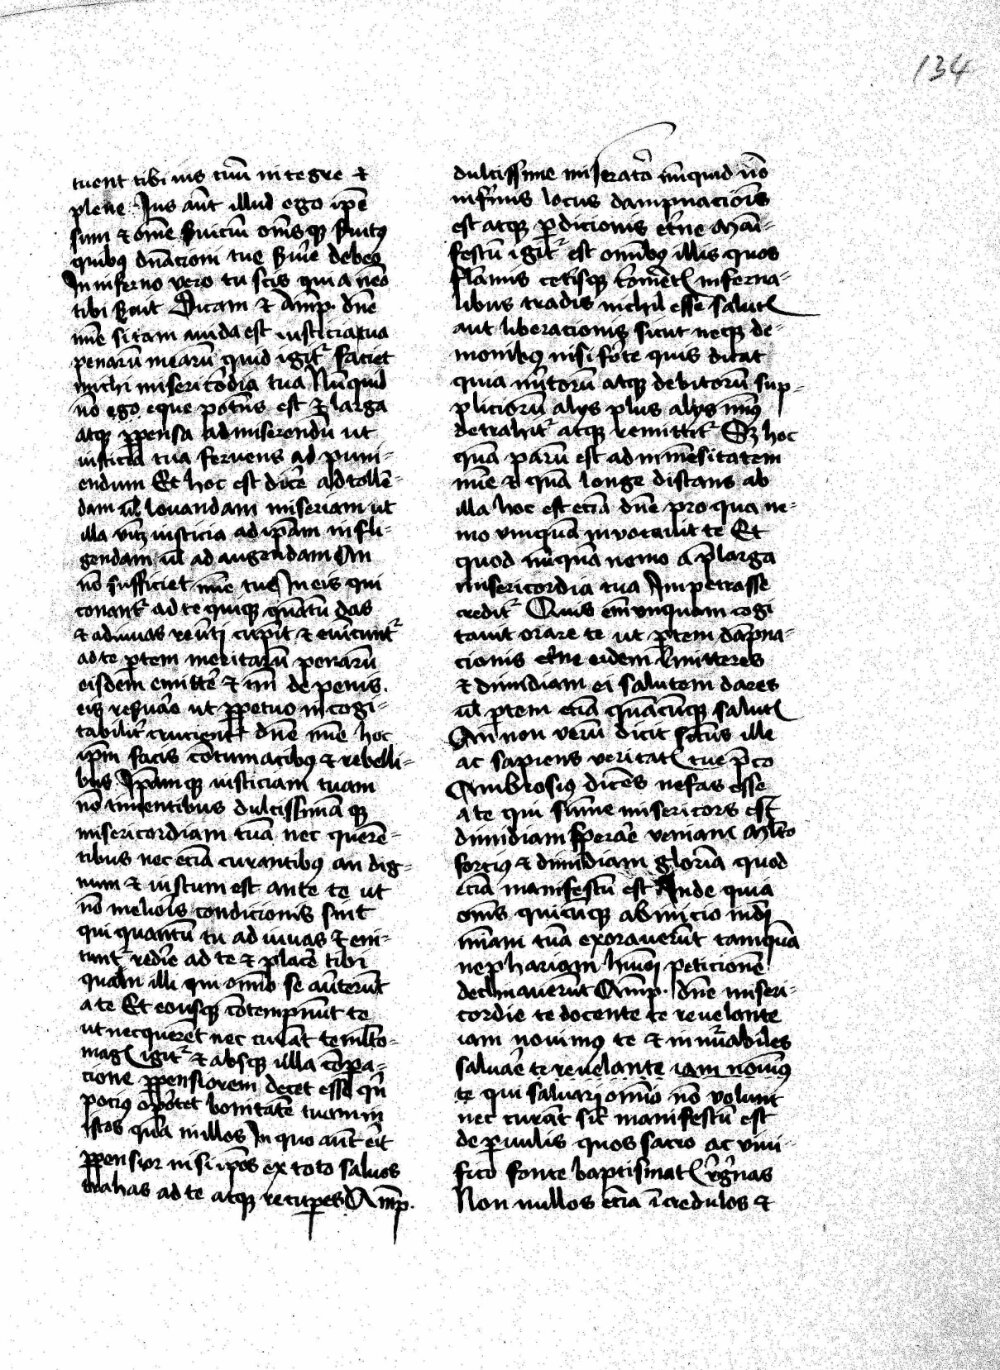 134
tuent tibi ius tuū integre et
plene Ius aūt illud ego ipē
sum et om̄e suiciū om̄sqꝫ suitus
quibꝫ dn̄acioni tue suire debeo
In inferno vero tu scis quia nēo
tibi suit Dicam et amp̄ dn̄e
mē si tam auida est iusticia tua
penarū mearū quid igitͬ faciet
michi misericordia tua Nūquid
nō eque potens est et larga
atqꝫ ꝑpensa ad miserendū ut
iusticia tua feruens ad puni-
endum Et hoc est dicē ad tollē-
dam ul̄ leuandam miseriam ut
illa iusticia ad ipam infli-
gendam ul̄ ad augendam An
nō sufficiet mīe tue In eis qui
conantͬ ad te quiqꝫ quātū das
et adiuuas reuti et
ad te ꝑtem meritarū penarū
eisdem et de penis
eis resuare ut ꝑpetuo incogi-
tabilitͬ crucient dn̄e mīe hoc
ipm̄ facis cōtumacibꝫ et rebelli-
bus Ipamqꝫ iusticiam tuam
nō timentibus dulcissimā qꝫ
misericordiam tuā nec querē-
tibus nec eciā curantibꝫ an dig-
num et iustum est ante te ut
nō melioris condicionis sint
qui quantū tu adiuuas et eni-
tuntͬ redire ad te et placē tibi
quam illi qui om̄io se auterūt
a te Et eousqꝫ cōtempn̄ut te
ut nec querēt nec curāt te
igitͬ et absqꝫ illa cōpa-
cione ꝑpensiorem decet esse
pocius oportet bonitatē tuam in
istos quā in illos In quo aūt erit
ꝑpensior nisi ipos ex toto saluos
trahas ad te atqꝫ recipes Amp̄
dulcissime miserator nūquid nō
infim̄us locus dampnacionis
est atqꝫ ꝑdicionis eterne Mani
festū igitͬ est om̄ibꝫ illis quos
flam̄is cetisqꝫ inferna-
libus tradis nichil esse salutis
aut liberacionis sicut neqꝫ de-
monibꝫ nisi forte quis dicat
quia atqꝫ debitorū sup-
pliciorū alijs plus alijs
detrahitͬ atqꝫ remittitͬ Sꝫ hoc
quā parū est ad im̄ensitatem
mīe et quā longe distans ab
illa hoc est eciā dn̄e pro qua ne-
mo vnquā inuocauit te Et
quod nūquā nemo a p̄larga
misericordia tua Impetrasse
creditͬ Quis em̄ vnquam cogi
tauit orare te ut ꝑtem dāpna-
cionis etne eidem remitteres
et dimidiam ei salutem dares
ul̄ ꝑtem eciā quācūqꝫ salutis
An non verū dicit sctūs ille
ac sapiens veritatis tue p̄co
Ambrosius dicēs nefas esse
a te qui sum̄e misericors est
dimidiam sperare veniam Mlto
forcius et dimidiam gloriā quod
eciā manifestū est Vnde quia
om̄s quicūqꝫ ab inicio mūdi
mīam tuā exorauerūt tamquā
nephariam huiꝰmōi peticionē
declinauerūt Amp̄ dn̄e miseri-
cordie te docente te reuelante
iam nouimꝫ te et inmūabiles
saluare te reuelante iam nouimꝰ
te qui saluari om̄io nō volunt
nec curāt sic manifestū est
de ꝑuulis quos sacro ac viui-
fico fonte baptismatis
Non nullos eciā īcredulos et